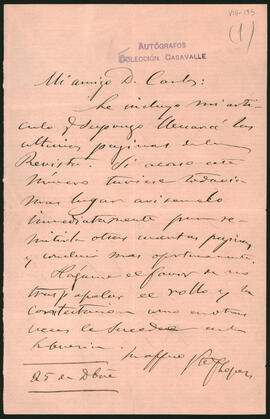 VIII-195
(1)
AUTÓGRAFOS
COLECCIÓN CASAVALLE
Mi amigo D. Carlos:
Le incluyo mi artí-
culo q supongo llenará las
ultimas paginas de la
Revista. Si acaso este
número tuviese todavia
mas lugar avisemelo
inmediatamente para re-
mitirle otras cuantas paginas
y concluir mas oportunamente.
Hagame el favor de no
el rollo y la
contestacion como otras
veces le sucede en la
Libreria
25 de Dbre